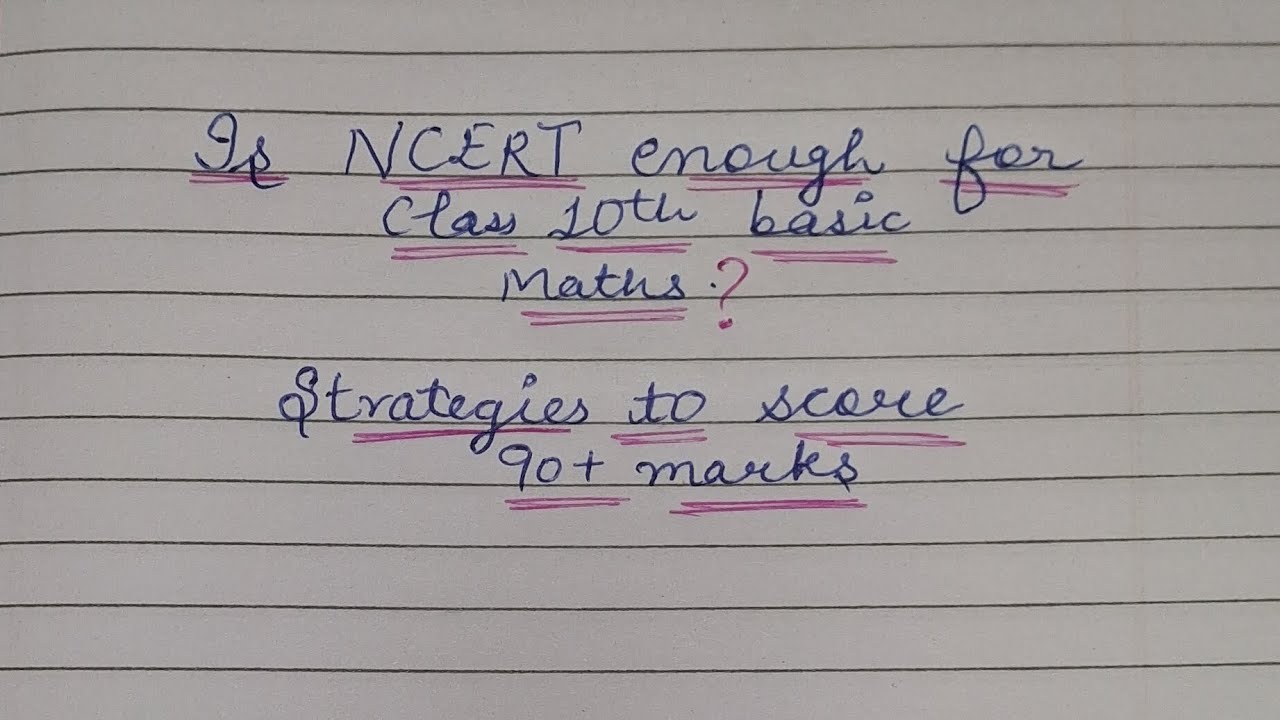 Is NCERT enough for
Class 10th basic
Maths.?
Strategies to score
90+ marks